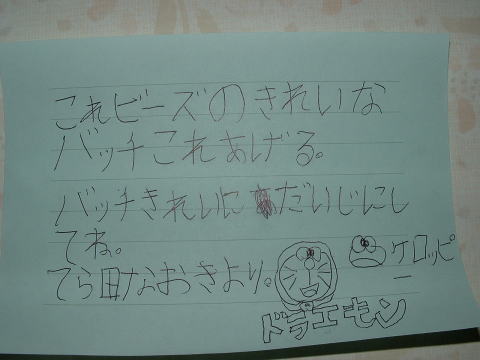 これビーズのきれいな
バッチこれあげる。
バッチきれいにだいじにし
てね。
てら田なおきより。
ケロッピ
ー
ドラエモン